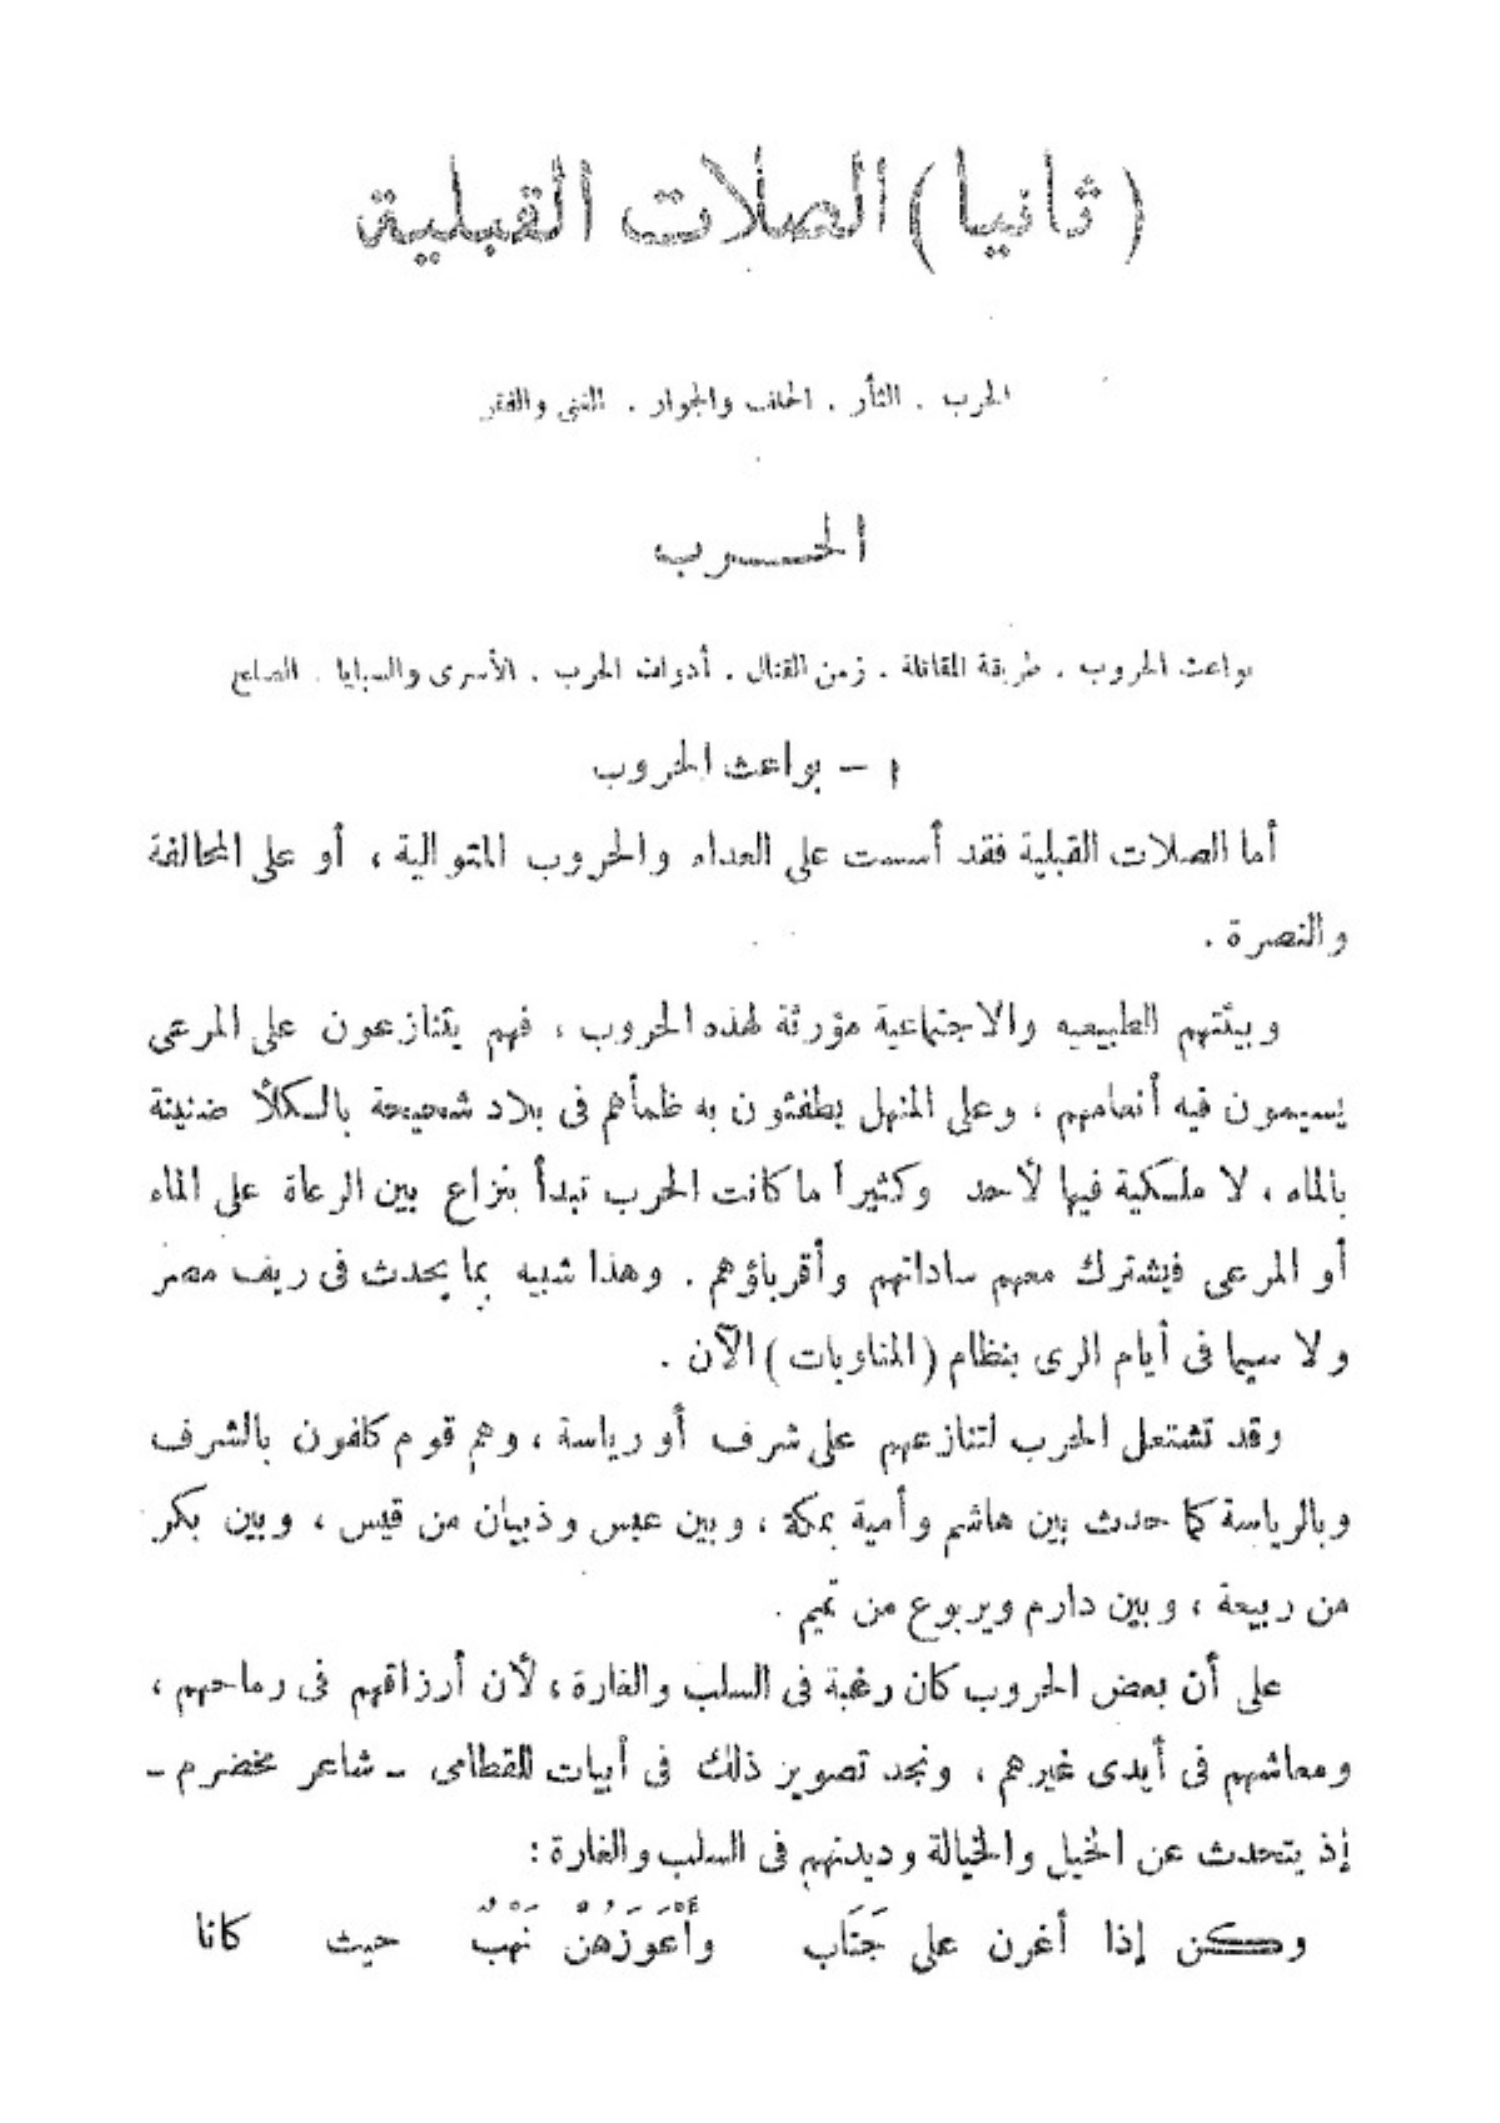 (ثانيا) الصلات القبلية
الحرب . الثأر . الحلف والجوار . الغنى والفقر
الحـــرب
بواعث الحروب . طريقة المقاتلة . زمن القتال . أدوات الحرب . الأسرى والسبايا . الصلح
١ – بواعث الحروب
أما الصلات القبلية فقد أسست على العداء والحروب المتوالية ، أو على المحالفة
والنصرة .
وبيئتهم الطبيعيه والاجتماعية مؤرثة لهذه الحروب ، فهم يتنازعون على المرعى
يسيمون فيه أنعامهم ، وعلى المنهل يطفئون به ظمأهم فى بلاد شحيحة بالكلأ ضنينة
بالماء ، لا ملكية فيها لأحد وكثيراً ما كانت الحرب تبدأ بنزاع بين الرعاة على الماء
أو المرعى فيشترك معهم ساداتهم وأقرباؤهم . وهذا شبيه بما يحدث فى ريف مصر
ولا سيما فى أيام الرى بنظام (المناوبات) الآن .
وقد تشتعل الحرب لتنازعهم على شرف أو رياسة ، وهم قوم كلفون بالشرف
وبالرياسة كما حدث بين هاشم وأمية بمكة ، وبين عبس وذبيان من قيس ، وبين بكر
من ربيعة ، وبين دارم ويربوع من تميم .
على أن بعض الحروب كان رغبة فى السلب والغارة ، لأن أرزاقهم فى رماحهم ،
ومعاشهم فى أيدى غيرهم ، ونجد تصوير ذلك فى أبيات للقطامى - شاعر مخضرم -
إذ يتحدث عن الخيل والخيالة وديدنهم فى السلب والغارة :
وكن إذا أغرن على جَنَاب وأَعْوَزَهُنَّ نَهْبٌ حيث كانا